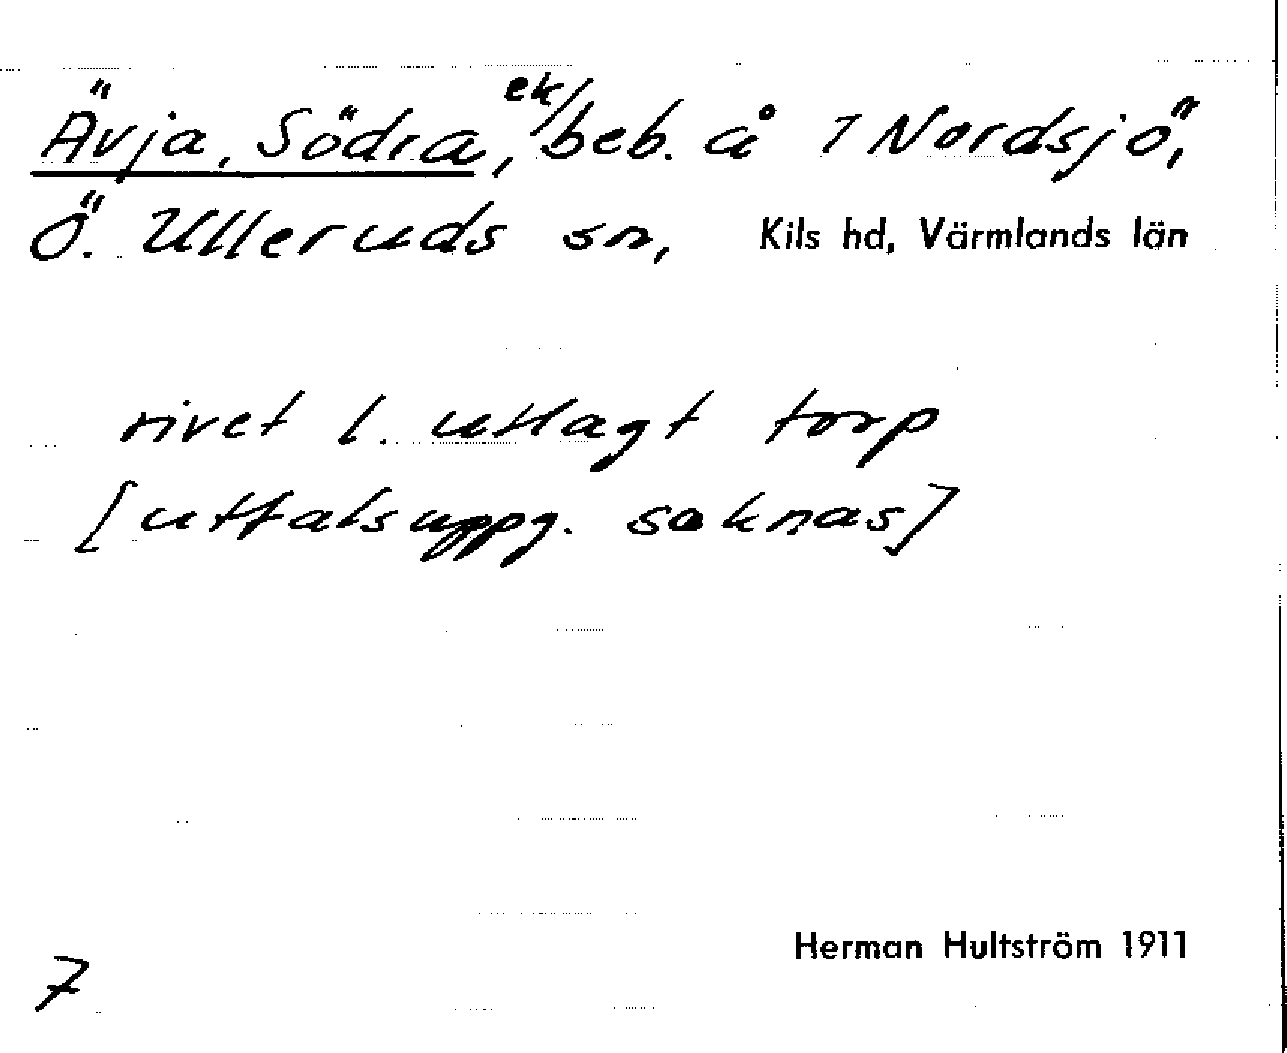 Ävja, Södra, ek/beb. å 7 Nordsjö,
Ö. Ulleruds sn, Kils hd, Värmlands län
rivet l. utlagt torp
[uttalsuppg. saknas]
Herman Hultström 1911
7